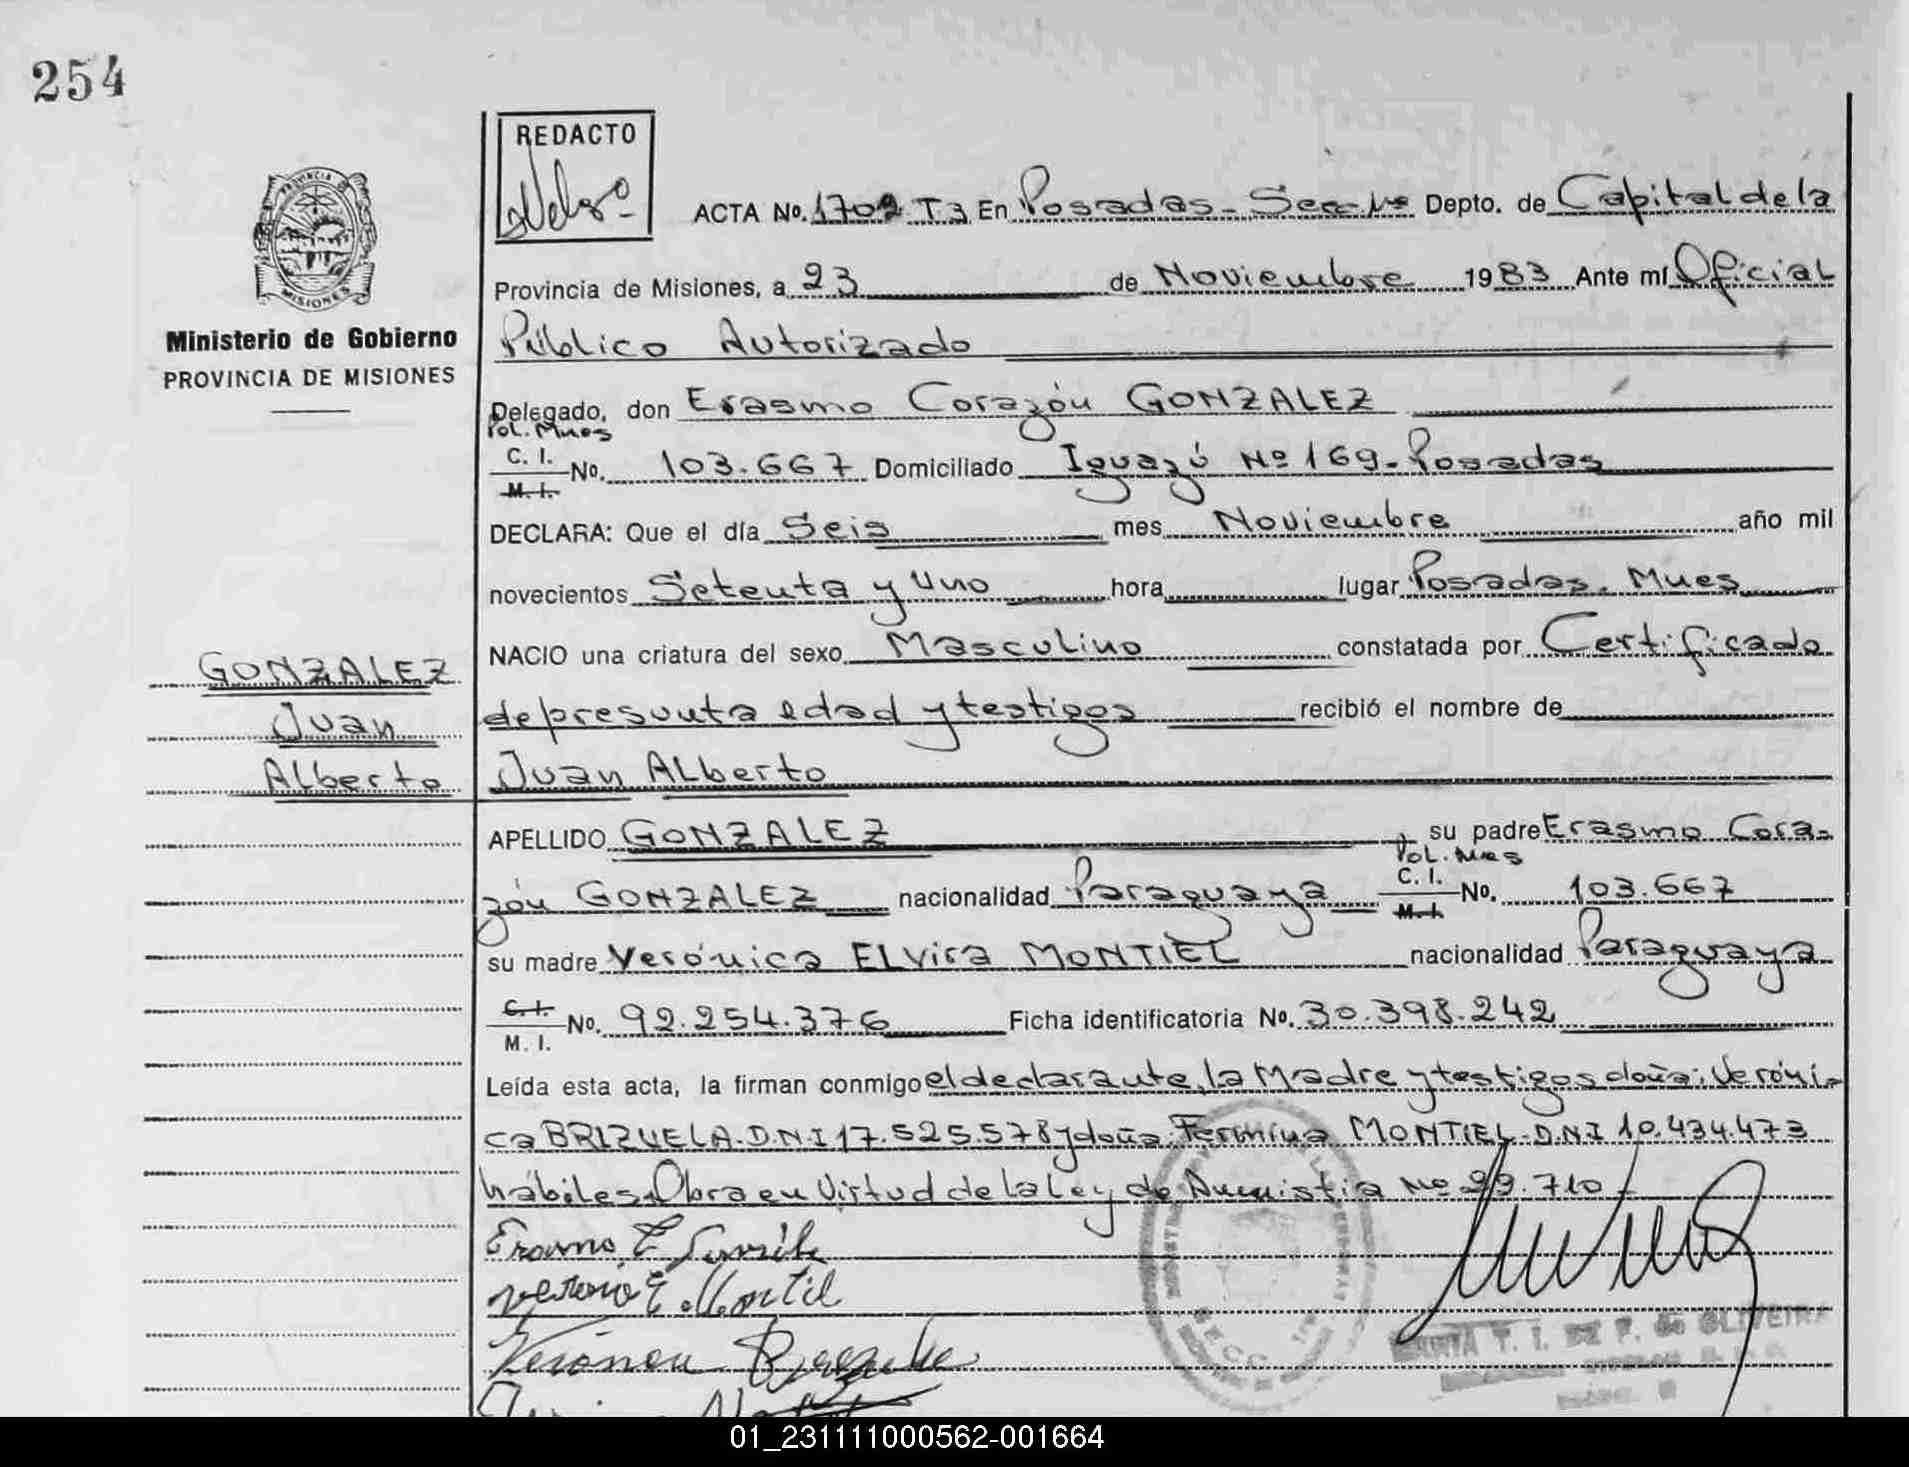 254
REDACTO
ACTA No. 1702 T3 En Posadas - Secc 1ra Depto. de Capital de la
Provincia de Misiones, a 23 de Noviembre 1983 Ante mí Oficial
Público Autorizado
Ministerio de Gobierno
PROVINCIA DE MISIONES
PROVINCIA DE
MISIONES
Delegado, don Erasmo Corazón GONZALEZ
Pol. Mnes
C. I.
M. I.
No. 103.667 Domiciliado Iguazú Nº 169 - Posadas
DECLARA: Que el día Seis mes Noviembre año mil
novecientos Setenta y Uno hora lugar Posadas. Mnes
NACIO una criatura del sexo Masculino constatada por Certificado
de presunta edad y testigos recibió el nombre de
Juan Alberto
GONZALEZ
Juan
Alberto
APELLIDO GONZALEZ su padre Erasmo Cora-
Pol. Mnes
zón GONZALEZ nacionalidad Paraguaya C. I. M. I. No. 103.667
su madre Verónica ELvira MONTIEL nacionalidad Paraguaya
C. I.
M. I.
No. 92.254.376 Ficha identificatoria No. 30.398.242
Leída esta acta, la firman conmigo el declarante, la Madre y testigos doña: Veróni-
ca BRIZUELA. D.N.I 17.525.578 y doña Fermina MONTIEL - D.N.I 10.434.473
hábiles. Obra en Virtud de la Ley de Amnistia Nº 22.710 -
01_231111000562-001664